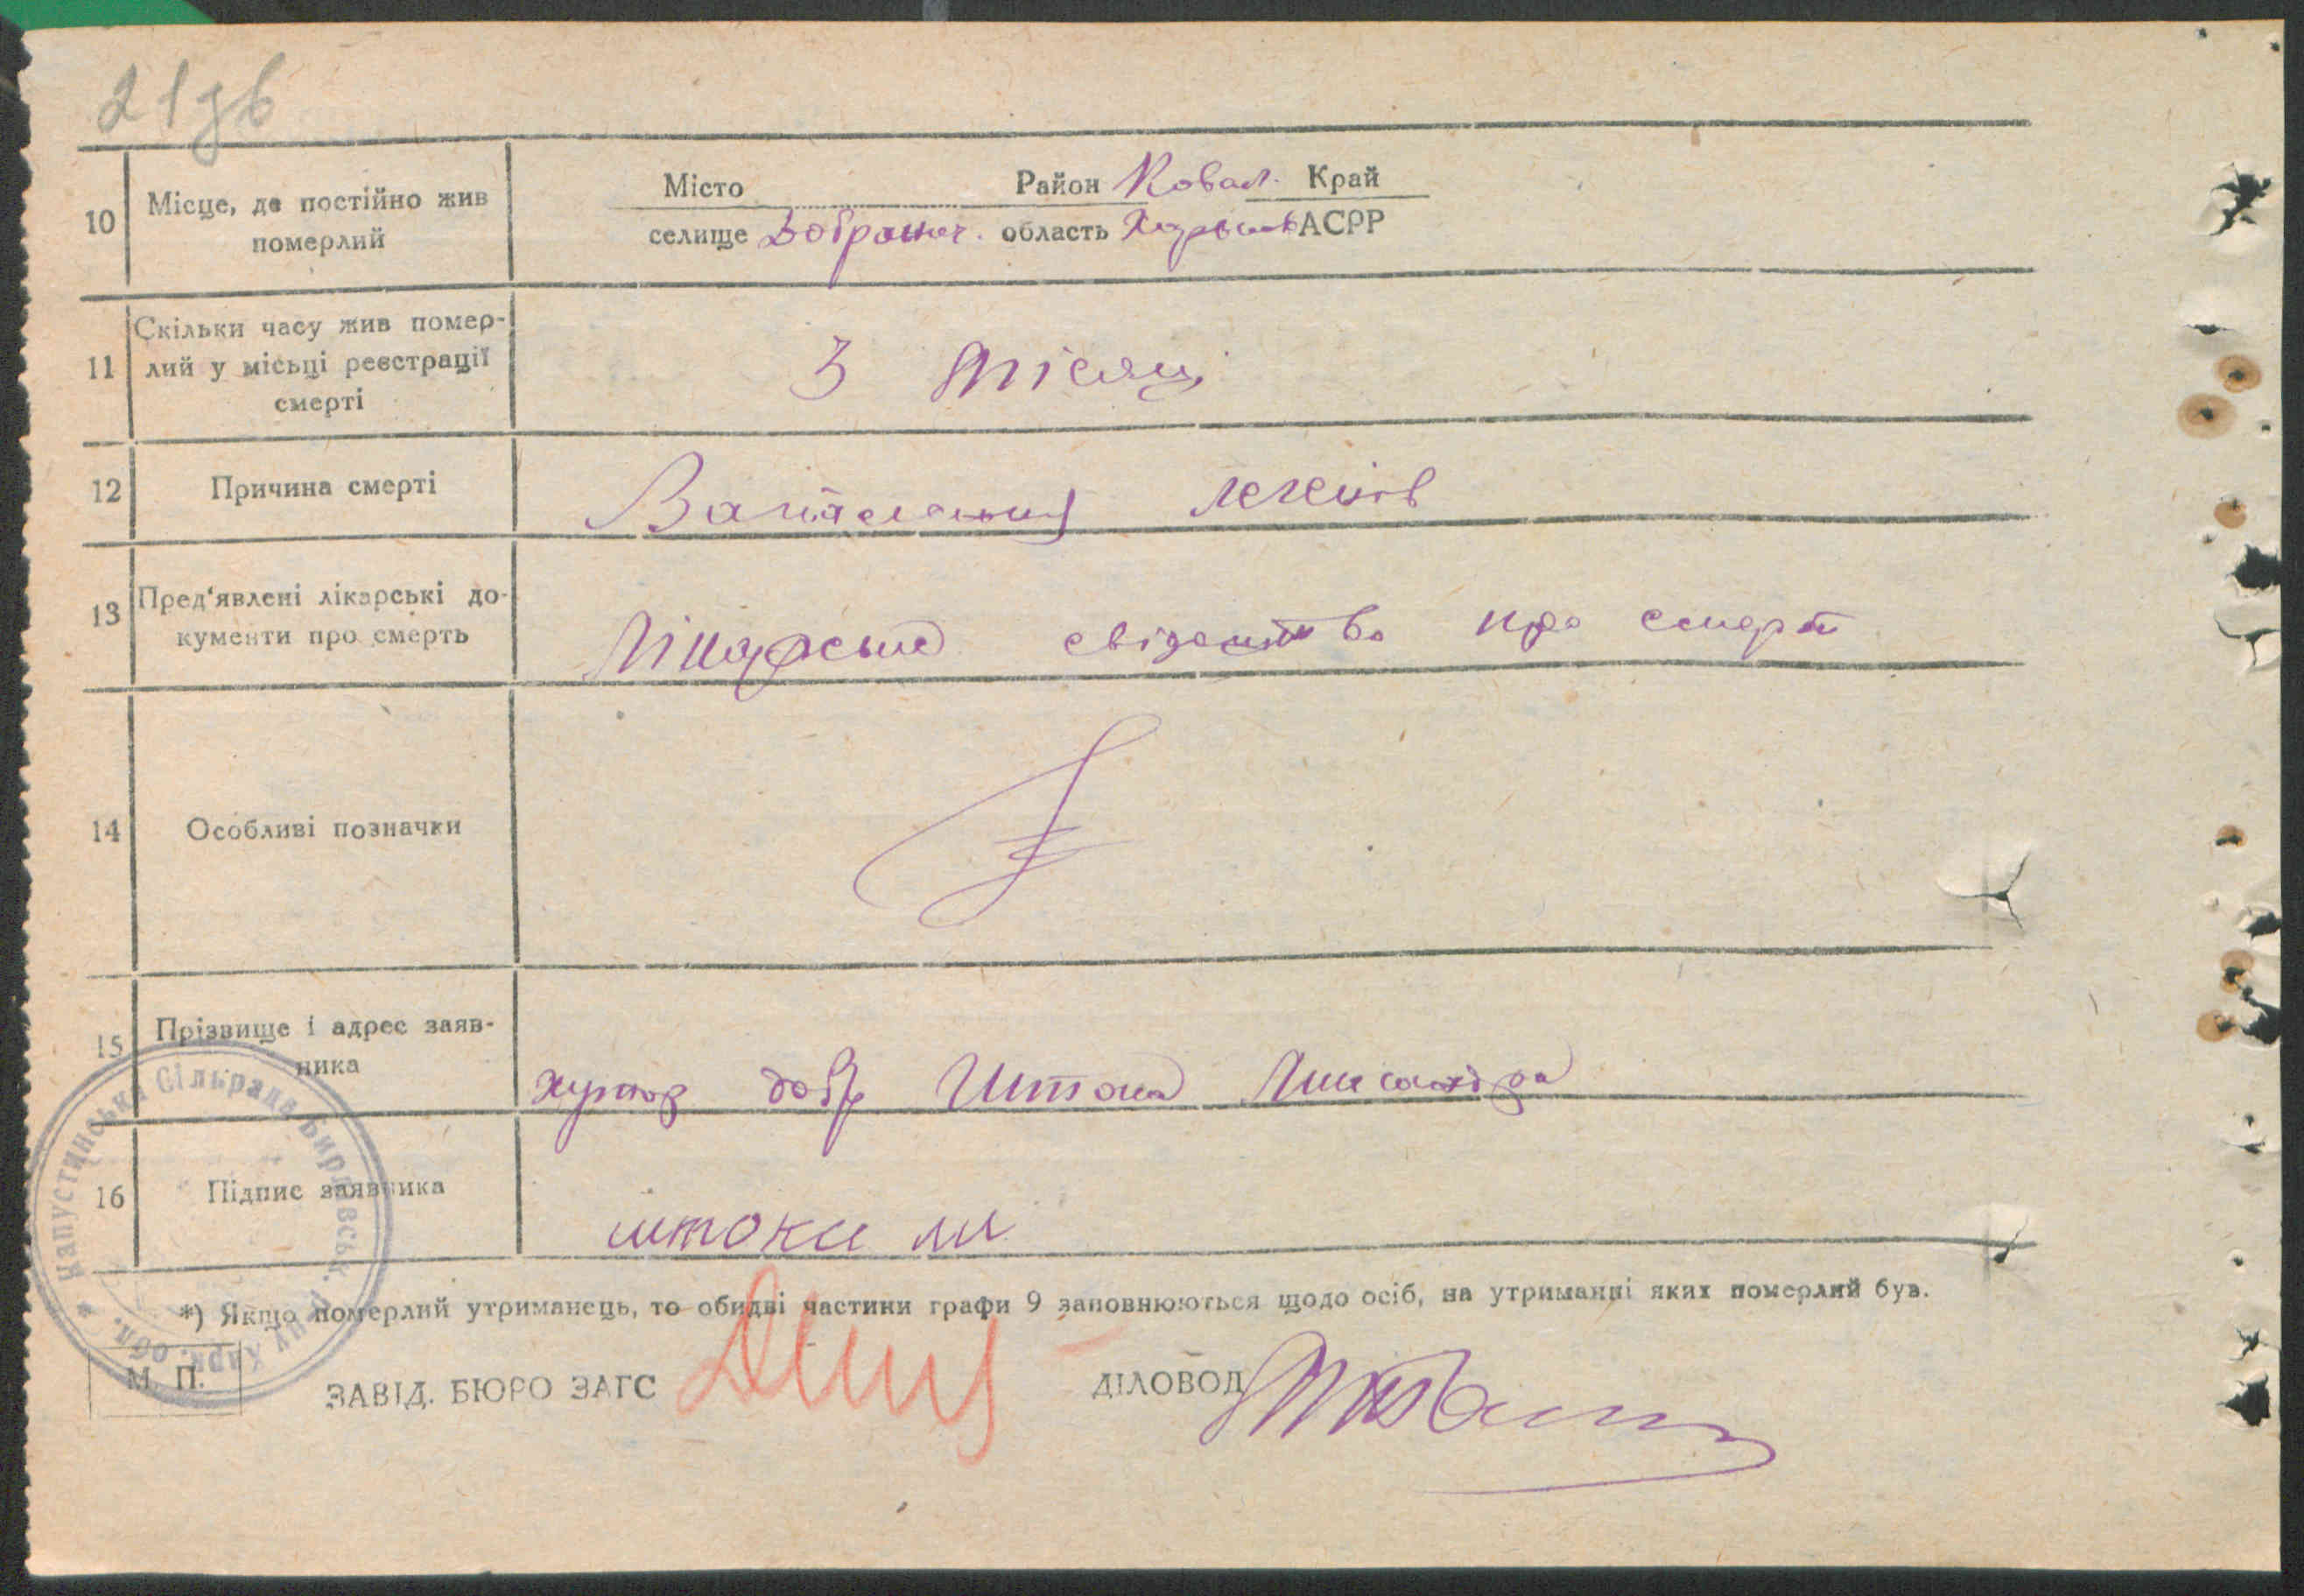 21зв
10 Місце, де постійно жив померлий
Місто Район Ковал. Край
селище область Харьков АСРР
11 Скільки часу жив помер-
лий у місьці реєстрації
смерті
3 місяці
12 Причина смерті
Запаления легенів
13 Пред'явлені лікарські до-
кументи про смерть
Лікарське про смерть
14 Особливі позначки
15 Прізвище і адрес заяв-
ника
хутор добр Штока
16 Підпис заявника
штока
*) Якщо померлий утриманець, то обидві частини графи 9 заповнюються щодо осіб, на утриманні яких померлий був.
М. П.
ЗАВІД. БЮРО ЗАГС
ДІЛОВОД
Капустинська Сільрада Харк. обл.